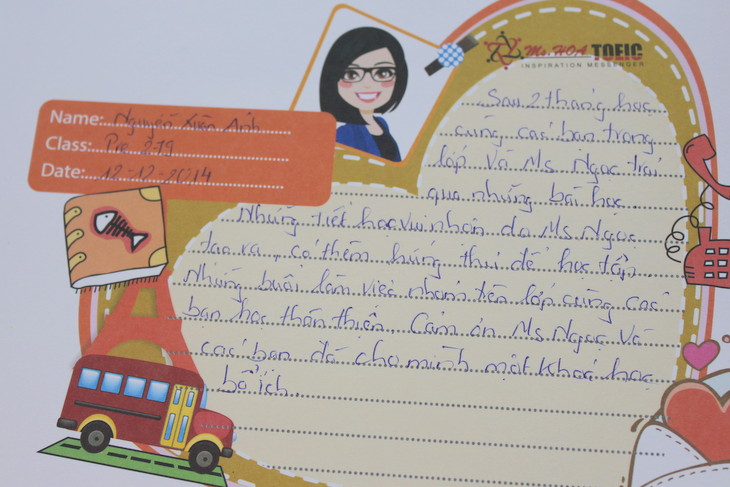 Ms. HOA TOEIC
INSPIRATION MESSENGER
Name: Nguyễn Xuân Anh
Class: Pre 219
Date: 12-12-2014
Sau 2 tháng học
cùng các bạn trong
lớp và Ms Ngọc trải
qua những bài học.
Những tiết học vui nhộn do Ms Ngọc
tạo ra, có thêm hứng thú để học tập.
Những buổi làm việc nhóm trên lớp cùng các
bạn học thân thiện. Cảm ơn Ms Ngọc và
các bạn đã cho mình một khoá học
bổ ích.